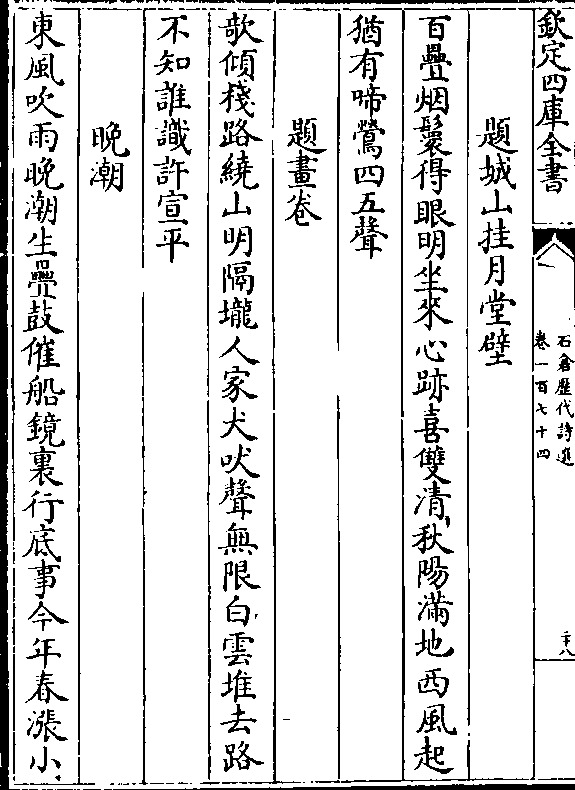 欽定四庫全書
石倉歷代詩選
卷一百七十四
二十八
題城山挂月堂壁
百疊烟鬟得眼明坐來心跡喜雙清秋陽滿地西風起
猶有啼鶯四五聲
題畫卷
欹傾棧路繞山明隔壠人家犬吠聲無限白雲堆去路
不知誰識許宣平
晚潮
東風吹雨晚潮生疊鼓催船鏡裏行底事今年春漲小